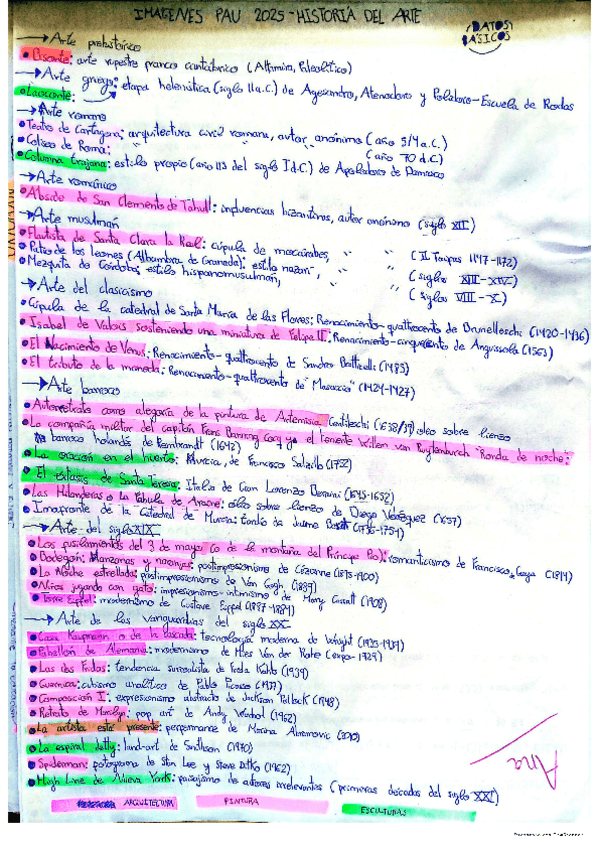 IMAGENES PAU 2025 - HISTORIA DEL ARTE
DATOS BÁSICOS
→ Arte prehistórico
• Bisonte: arte rupestre franco cantábrico (Altamira, Paleolítico)
→ Arte griego: etapa helenística (siglo II a.C.) de Agesandro, Atenodoro y Polidoro - Escuela de Rodas
• Laoconte:
→ Arte romano
• Teatro de Cartagena: arquitectura civil romana, autor anónimo (año 5/4 a.C.)
• Coliseo de Roma: (año 70 d.C)
• Columna trajana: estilo propio (año 113 del siglo I d.C.) de Apolodoro de Damasco
→ Arte románico
• Abside de San Clemente de Tahull: influencias bizantinas, autor anónimo (siglo XII)
→ Arte musulmán
• de Santa Clara la Real: cúpula de mocárabes, " " (II. Taifas 1147-1172)
• Patio de los leones (Alhambra de Granada): estilo nazarí, " " (siglos XIII-XIV)
• Mezquita de Córdoba: estilo hispanomusulmán, " " (siglos VIII-X)
→ Arte del clasicismo
• Cúpula de la catedral de Santa María de las Flores: Renacimiento-quattrocento de Brunelleschi (1420-1436)
• Isabel de Valois sosteniendo una miniatura de Felipe II: Renacimiento-cinquecento de Anguissola (1563)
• El Nacimiento de Venus: Renacimiento-quattrocento de Sandro Botticelli (1485)
• El tributo de la moneda: Renacimiento-quattrocento de "Masaccio" (1424-1427)
→ Arte barroco
• Autorretrato como alegoría de la pintura de Artemisia Gentileschi (1638/39) óleo sobre lienzo
• La compañía militar del capitán Frans Banning Cocq y el teniente Willen van Ruytenburch "Ronda de noche:
barroco holandés de Rembrandt (1642)
• La oración en el huerto: Murcia, de Francisco Salzillo (1752)
• El éxtasis de Santa Teresa: Italia de Gian Lorenzo Bernini (1645-1652)
• Las Hilanderas o la Fábula de Aracne: óleo sobre lienzo de Diego Velázquez (1657)
• Imafronte de la Catedral de Murcia: tardío de Jaime Bort (1736-1754)
→ Arte del siglo XIX
• Los fusilamientos del 3 de mayo (o de la montaña del Príncipe Pío): romanticismo de Francisco de Goya (1814)
• Bodegón: Manzanas y naranjas: postimpresionismo de Cézanne (1895-1900)
• La Noche estrellada: postimpresionismo de Van Gogh (1889)
• Niños jugando con gato: impresionismo-intimismo de Mary Cassatt (1908)
• Torre Eiffel: modernismo de Gustave Eiffel (1887-1889)
→ Arte de las vanguardias del siglo XX
• Casa Kaufmann o de la cascada: tecnología moderna de Wright (1935-1939)
• Pabellón de Alemania: modernismo de Mies Van der Rohe (expo-1929)
• Las dos Fridas: tendencia surrealista de Frida Kahlo (1939)
• Guernica: cubismo analítico de Pablo Picasso (1937)
• Composición I: expresionismo abstracto de Jackson Pollock (1948)
• Retrato de Marilyn: pop art de Andy Warhol (1962)
• La artista está presente: performance de Marina Abramovic (2010)
• La espiral Jetty: land-art de Smithson (1970)
• Spiderman: fotograma de Stan Lee y Steve Ditko (1962)
• High Line de Nueva York: paisajismo de autores irrelevantes (primeras décadas del siglo XXI)
Ana
ARQUITECTURA PINTURA ESCULTURAS